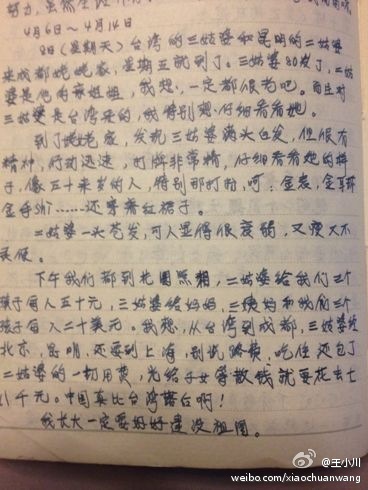 努力,
4月6日～4月14日
8日(星期天)台湾的三姑婆和昆明的二姑婆
来成都姥姥家,星期五就到了。三姑婆80岁了,二姑
婆是他的亲姐姐,我想,一定都很老吧。而且对
三姑婆是台湾来的,我特别想仔细看看她。
到了姥姥家,发现三姑婆满头白发,但很有
精神,行动迅速,打牌非常精,仔细看看她的样
子,像五十来岁的人,特别那打扮,呵:金表,金耳环
金手饰……还穿着红裙子。
二姑婆一头苍发,可人显得很衰弱,又傻又不
灵便。
下午我们都到花园照相,二姑婆给我们三个
孩子每人五十元,三姑婆给妈妈,二姨妈和我们三个
孩子每人二十美元。我想,从台湾到成都,三姑婆经
北京,昆明,还要到上海,别说路费,吃住还包了
二姑婆的一切用费,光给子女等散钱就要花去七
八千元。中国真比台湾落后啊!
我长大一定要好好建设祖国。
@王小川
weibo.com/xiaochuanwang